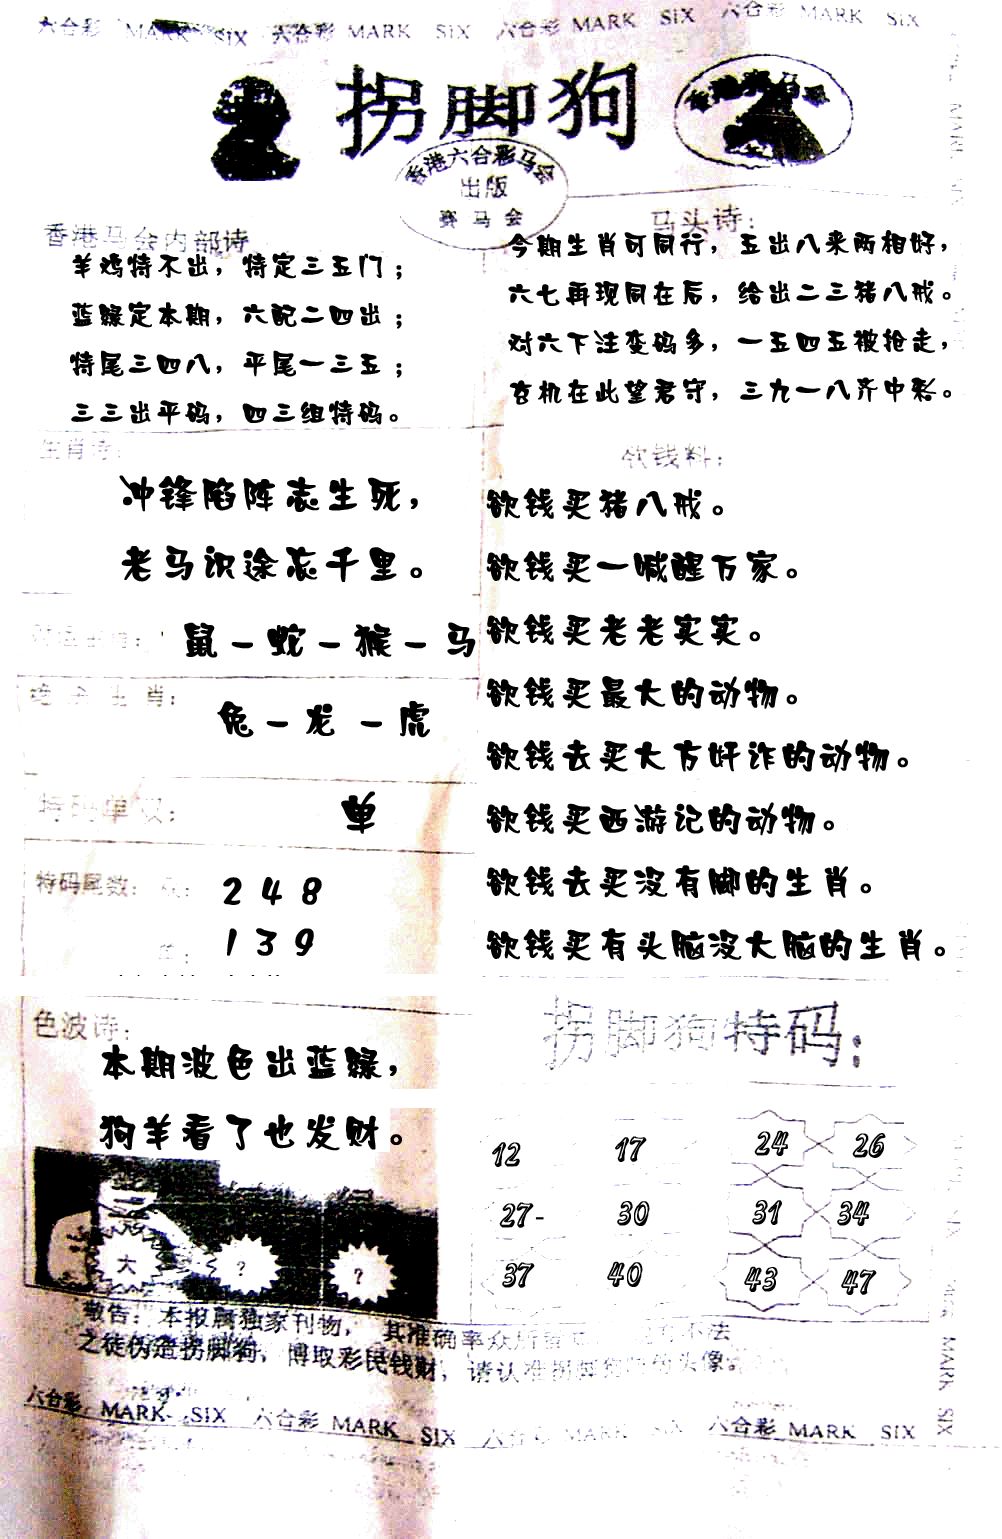 六合彩 MARK SIX 六合彩 MARK SIX 六合彩 MARK SIX 六合彩 MARK SIX
拐脚狗
香港六合彩马会
出版
赛马会
香港马会内部诗
羊鸡特不出，特定三五门；
蓝绿定本期，六配二四出；
特尾三四八，平尾一三五；
三三出平码，四三组特码。
马头诗：
今期生肖可同行，五出八来两相好，
六七再现同在后，给出二三猪八戒。
对六下注变码多，一五四五被抢走，
玄机在此望君守，三九一八齐中彩。
生肖诗：
冲锋陷阵志生死，
老马识途志千里。
鼠－蛇－猴－马
生肖：
兔－龙－虎
特码单双：
单
特码尾数：
2 4 8
1 3 9
欲钱料：
欲钱买猪八戒。
欲钱买一喊醒万家。
欲钱买老老实实。
欲钱买最大的动物。
欲钱去买大方奸诈的动物。
欲钱买西游记的动物。
欲钱去买没有脚的生肖。
欲钱买有头脑没大脑的生肖。
色波诗：
本期波色出蓝绿，
狗羊看了也发财。
大 ? ?
拐脚狗特码：
12 17 24 26
27- 30 31 34
37 40 43 47
敬告：本报属独家刊物，其准确率众所 不法
之徒伪造拐脚狗，博取彩民钱财，请认准拐脚狗 头像
六合彩 MARK SIX 六合彩 MARK SIX 六合彩 MARK SIX 六合彩 MARK SIX
MARK SIX